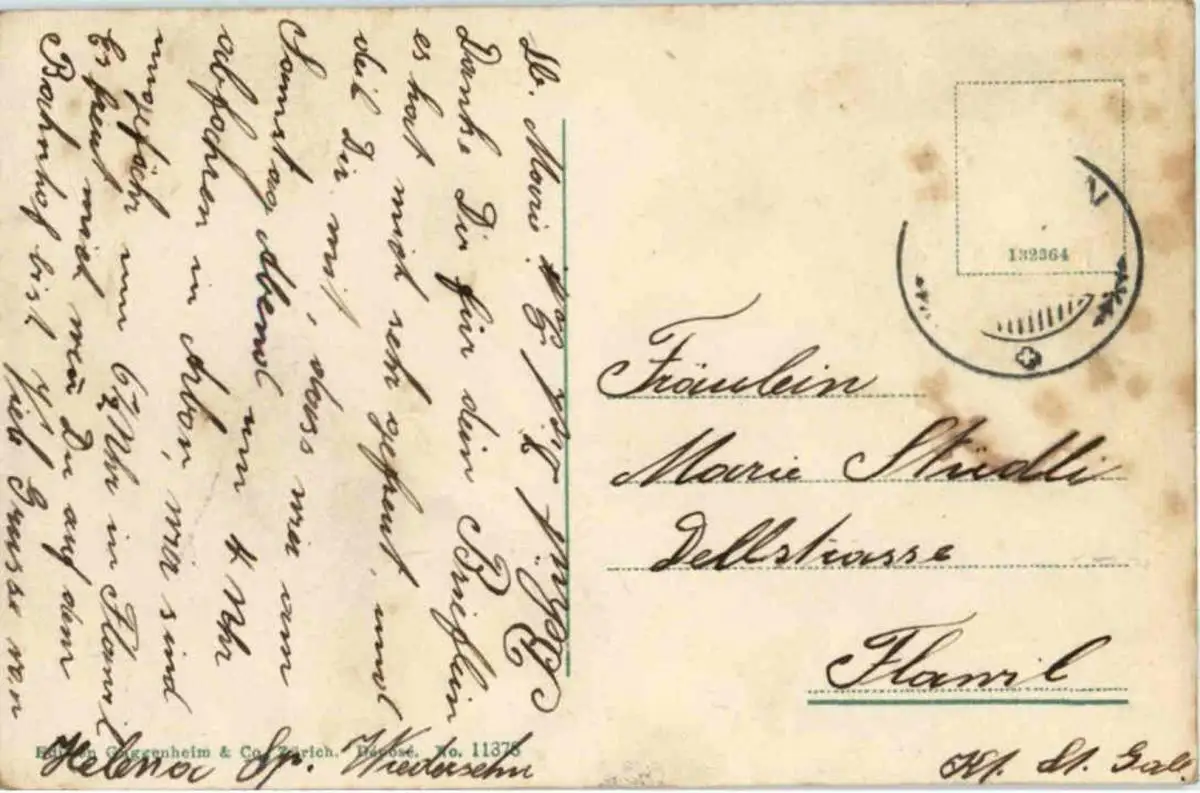 Lb. Marie!
Danke Dir für dein Brieflein
es hat mich sehr gefreut, und
teil Dir mit, dass wir am
Samstag Abend um 4 Uhr
abfahren in Arbon, wir sind
ungefähr um 6½ Uhr in Flawil
Es freut mich wen̄ Du auf dem
Bahnhof bist. Viel Grüsse von
Helena Sp. Wiedersehn
132364
Fräulein
Marie Stüdli
Dellstrasse
Flawil
Kt. St. Gall.
Edition Guggenheim & Co., Zürich. Déposé. No. 11378